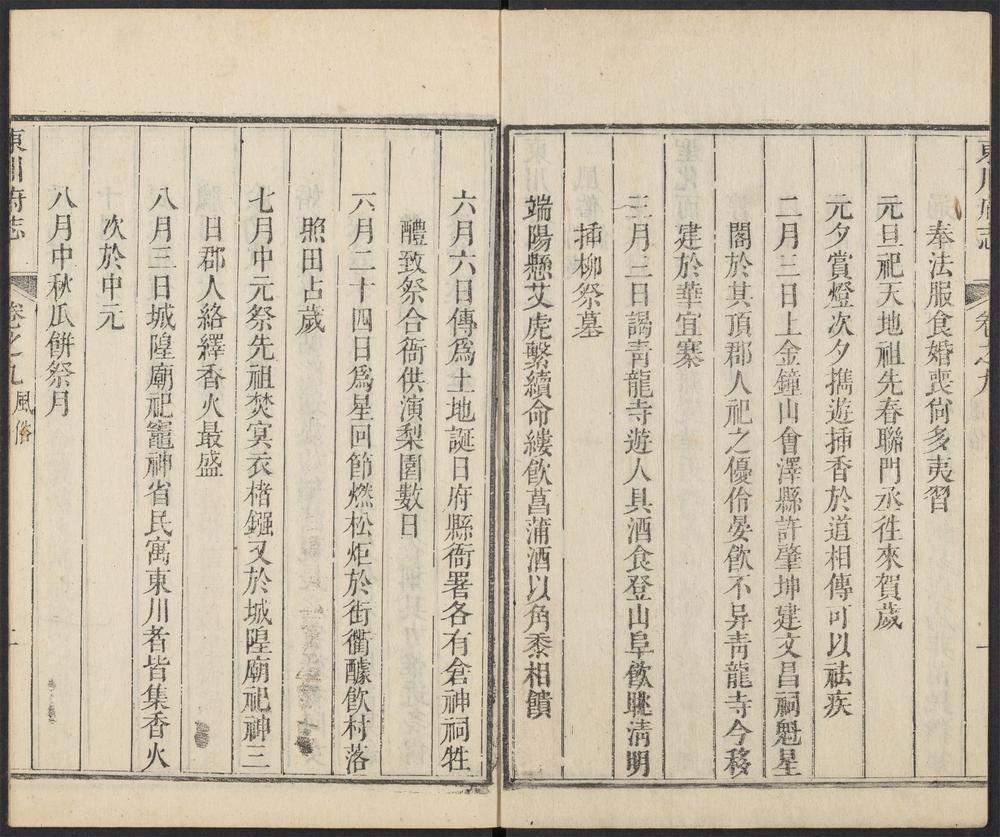 東川府志
卷之九
一
奉法服食婚喪尙多夷習
元旦祀天地祖先春聯門丞徃來賀歲
元夕賞燈次夕擕遊揷香於道相傳可以祛疾
二月三日上金鐘山會澤縣許肇坤建文昌祠魁星
閣於其頂郡人祀之優伶晏飮不异青龍寺今移
建於華宜寨
三月三日謁靑龍寺遊人具酒食登山阜飮眺淸明
揷柳祭墓
端陽懸艾虎繫續命縷飮菖蒲酒以角黍相饋
六月六日傳爲土地誕日府縣衙署各有倉神祠牲
醴致祭合衙供演梨園數日
六月二十四日爲星回節燃松炬於街衢醵飮村落
照田占歲
七月中元祭先祖焚㝠衣楮鏹又於城隍廟祀神三
日郡人絡繹香火最盛
八月三日城隍廟祀竈神省民寓東川者皆集香火
次於中元
八月中秋瓜餠祭月
東川府志
卷之九
風俗
二